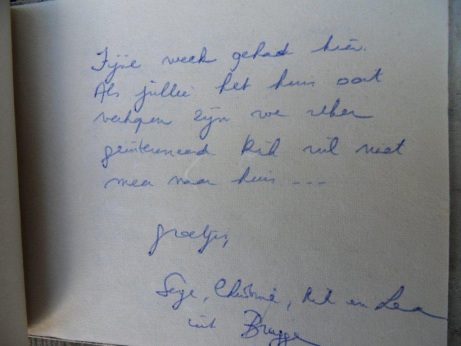 Fijne week gehad hier.
Als jullie het huis ooit
verkopen zijn we zeker
geïnteresseerd Rik wil niet
meer naar huis ---
groetjes,
Christine, Rik en
uit Brugge